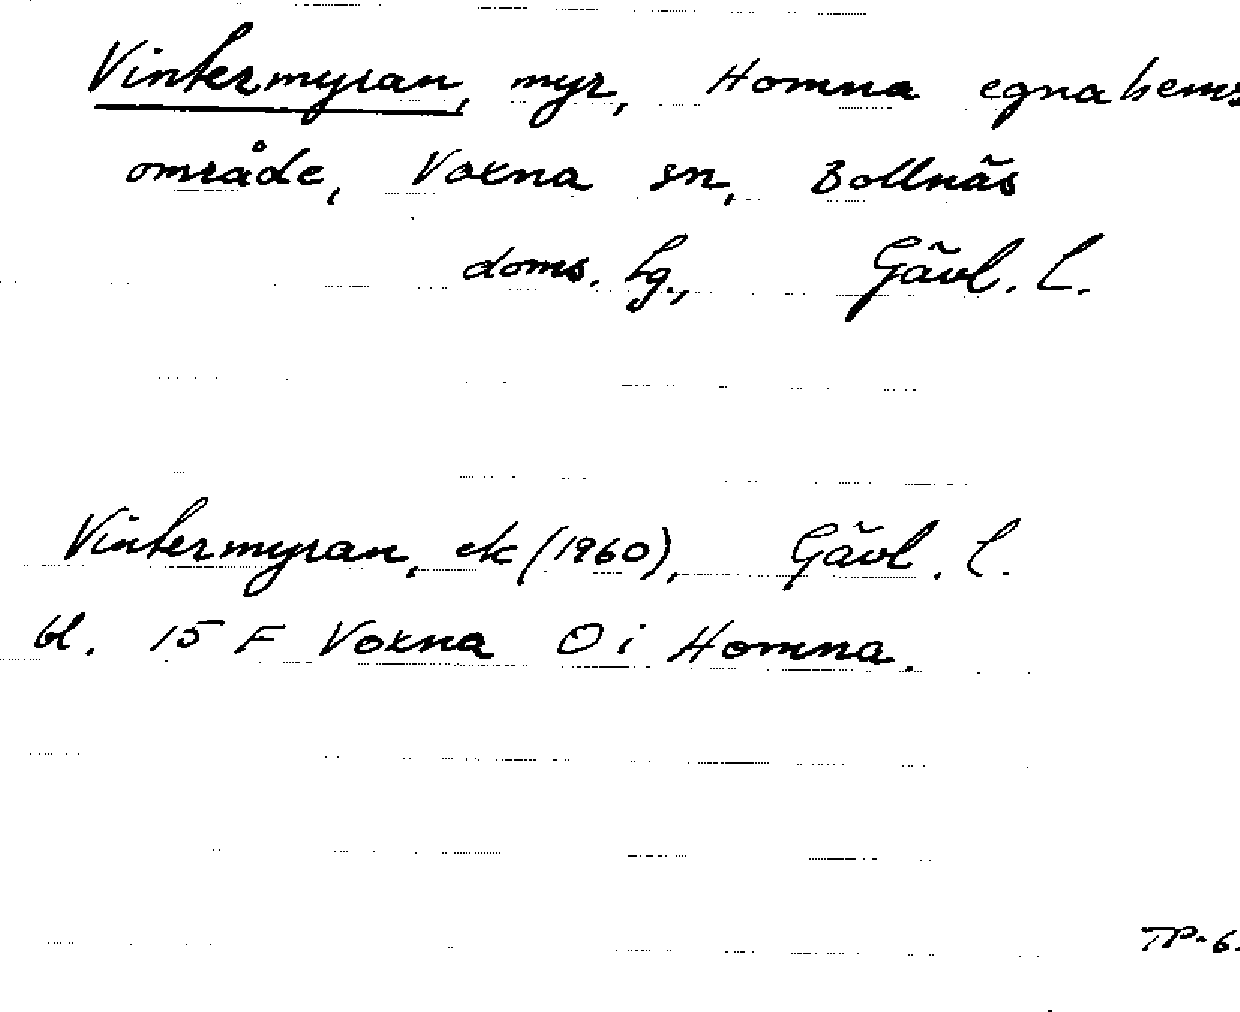 Vintermyran, myr, Homna egnahems
område, Voxna sn, Bollnäs
doms. hg., Gävl. l.
Vintermyran, ek (1960), Gävl. l.
bl. 15 F Voxna O i Homna.
TP-6.